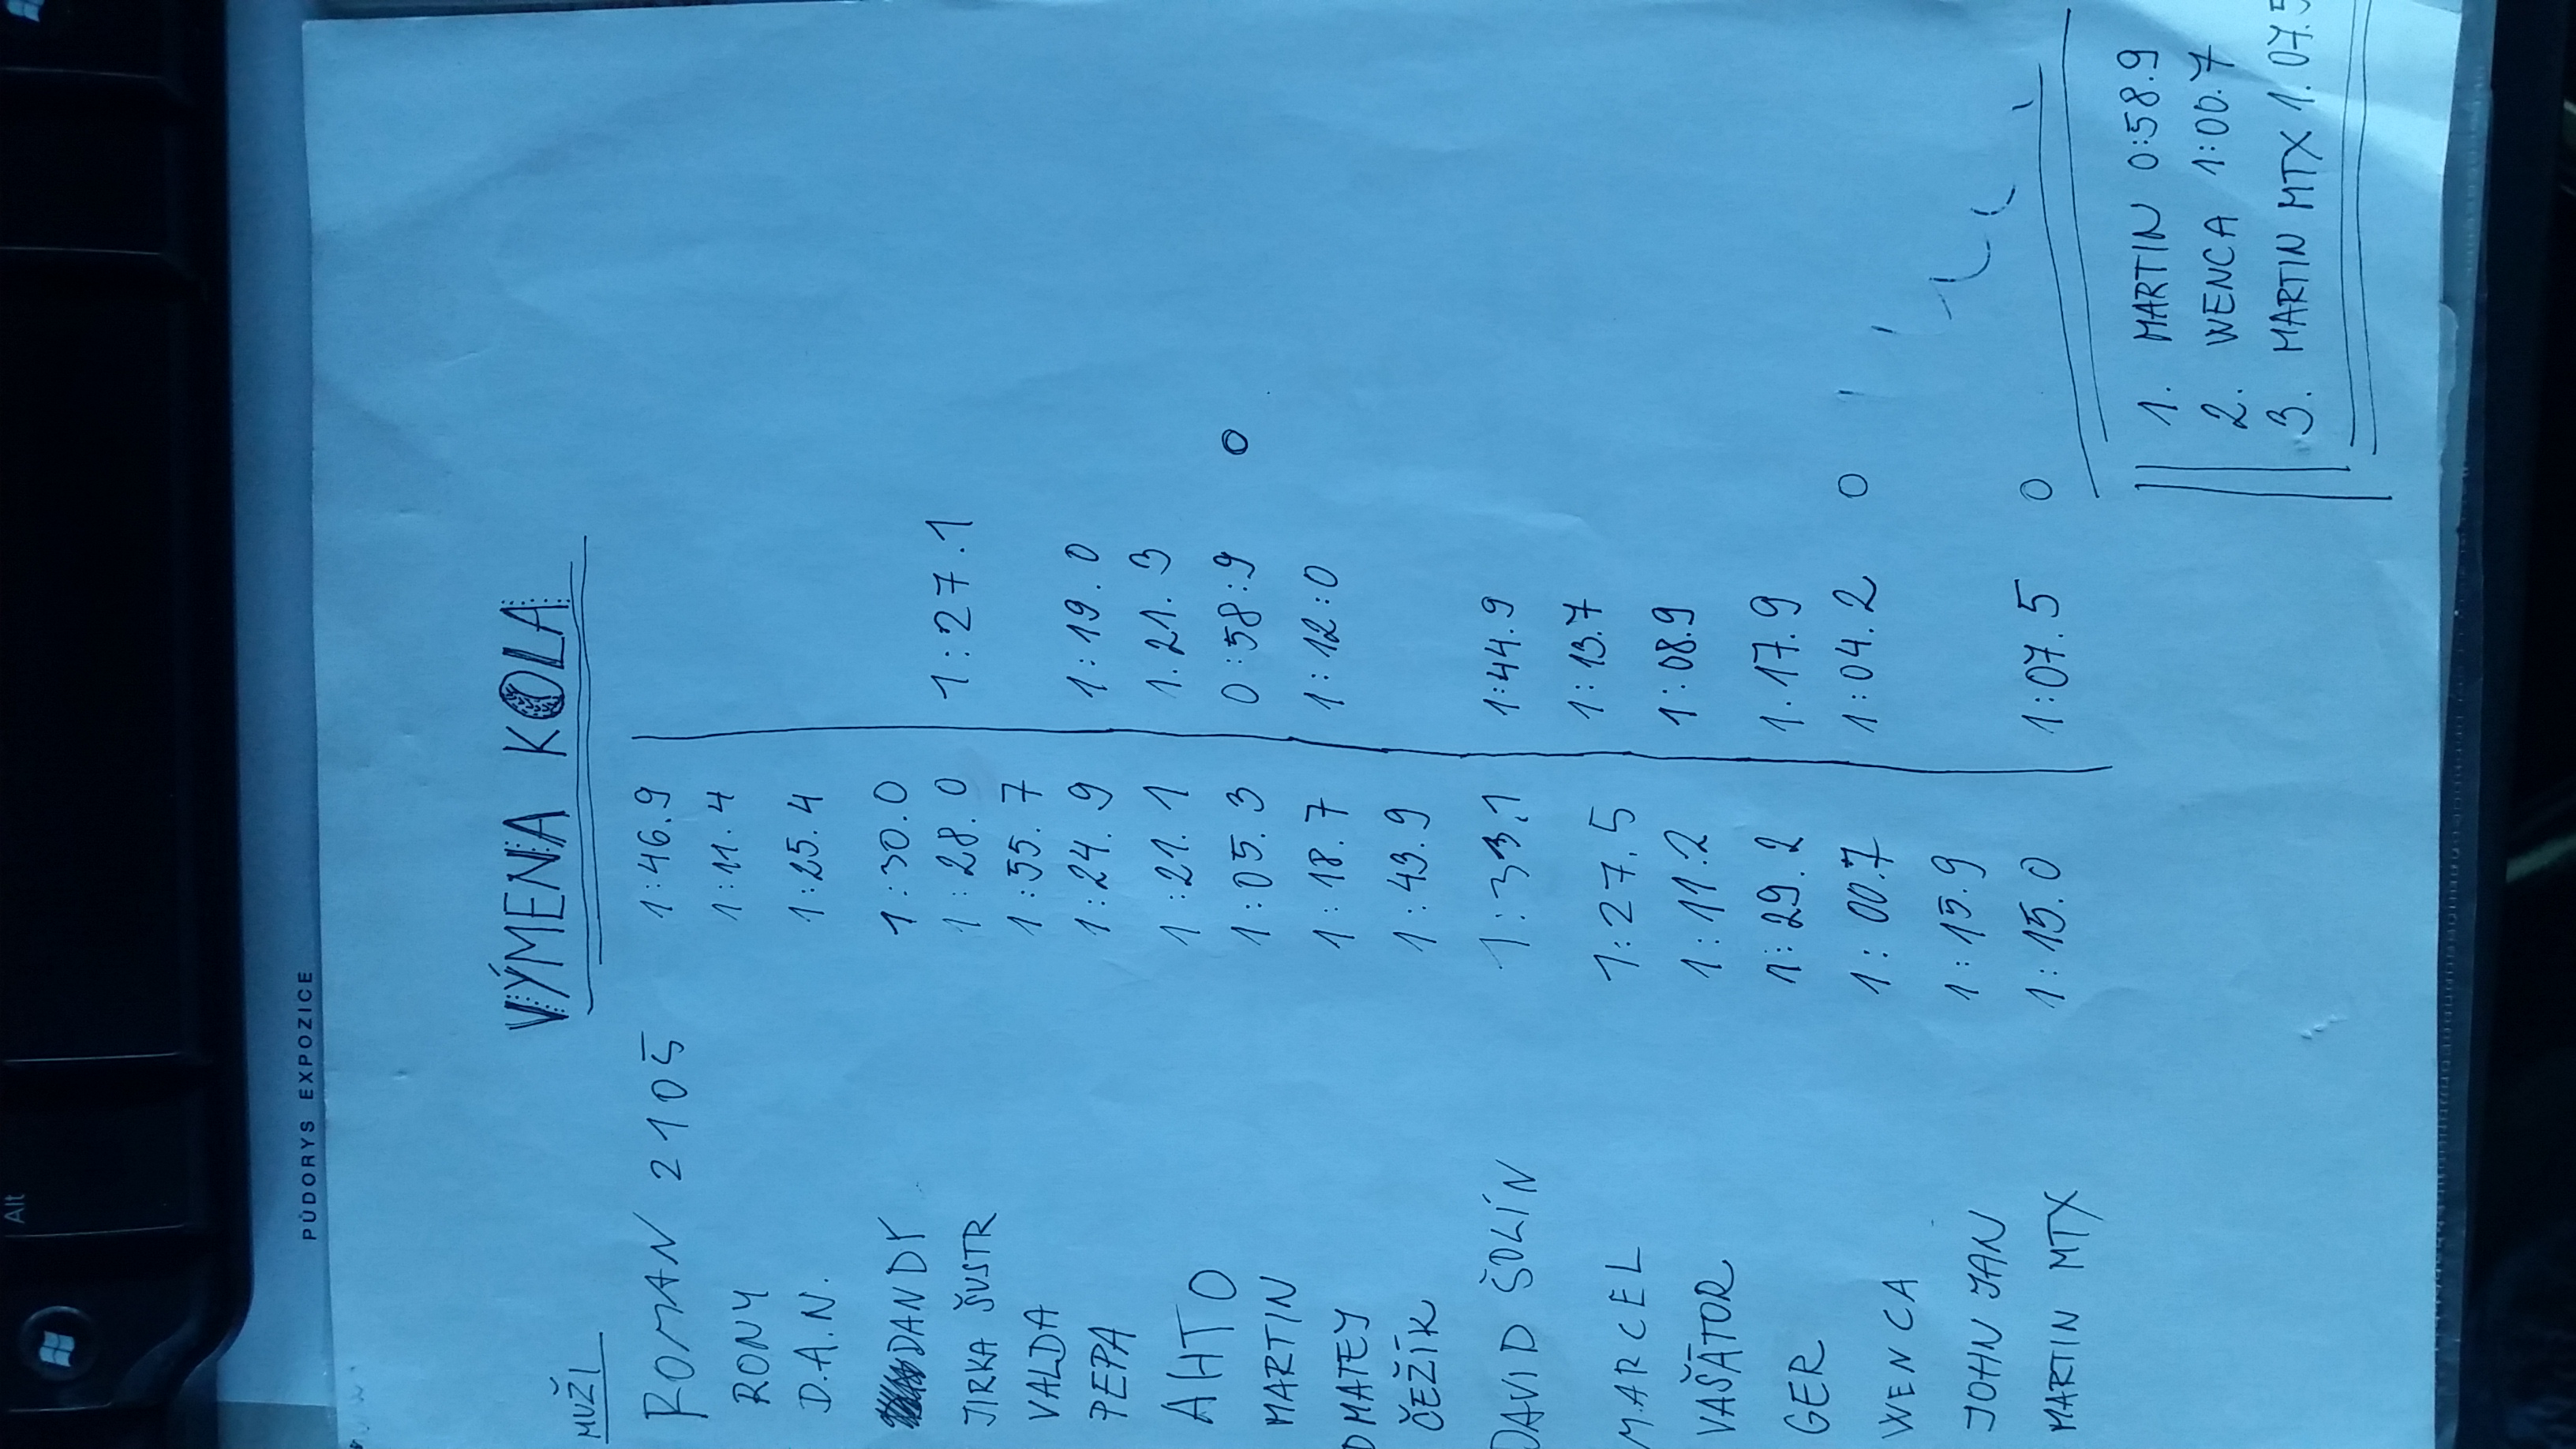 Alt
PŮDORYS EXPOZICE
VÝMENA KOLA
MUŽI
ROMAN 2105 1:46.9
RONY 1:11.4
D.A.N. 1:25.4
DANDY 1:30.0
JIRKA ŠUSTR 1:28.0 1:27.1
VALDA 1:55.7
PEPA 1:24.9 1:19.0
AHTO 1:21.1 1:21.3
MARTIN 1:05.3 0:58:9 O
DMATEJ 1:18.7 1:12:0
ČEŽÍK 1:43.9
DAVID ŠOLÍN 1:33.1 1:44.9
MARCEL 1:27.5 1:13.7
VAŠÁTOR 1:11.2 1:08.9
GER 1:29.2 1.17.9
WENCA 1:00.7 1:04.2 O
JOHN JAN 1:15.9
MARTIN MTX 1:15.0 1:07.5 O
1. MARTIN 0:58.9
2. WENCA 1:00.7
3. MARTIN MTX 1.07.5